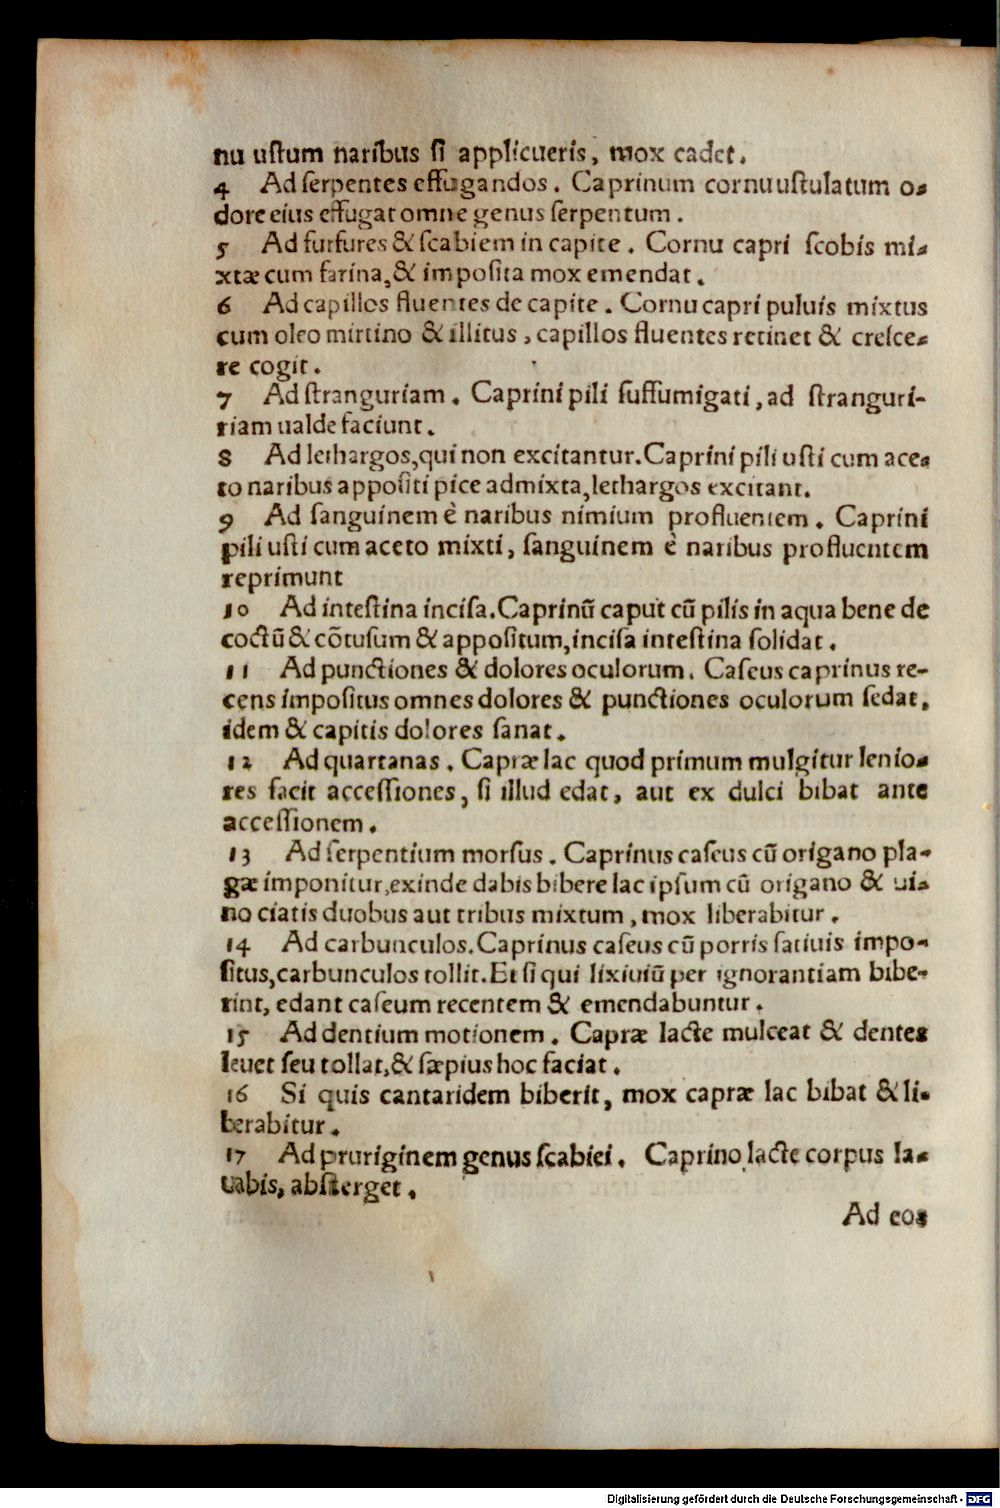 nu uſtum naribus ſi applicueris, mox cadet.
4 Ad ſerpentes effugandos. Caprinum cornu uſtulatum o-
dore eius effugat omne genus ſerpentum.
5 Ad furfures & ſcabiem in capite. Cornu capri ſcobis mi-
xtæ cum farina, & impoſita mox emendat.
6 Ad capillos fluentes de capite. Cornu capri puluis mixtus
cum oleo mirtino & illitus, capillos fluentes retinet & creſce-
re cogit.
7 Ad ſtranguriam. Caprini pili ſuffumigati, ad ſtranguri-
riam ualde faciunt.
8 Ad lethargos, qui non excitantur. Caprini pili uſti cum ace-
to naribus appoſiti pice admixta, lethargos excitant.
9 Ad ſanguinem è naribus nimium profluentem. Caprini
pili uſti cum aceto mixti, ſanguinem è naribus profluentem
reprimunt
10 Ad inteſtina inciſa. Caprinũ caput cũ pilis in aqua bene de
coctũ & cõtuſum & appoſitum, inciſa inteſtina ſolidat.
11 Ad punctiones & dolores oculorum. Caſeus caprinus re-
cens impoſitus omnes dolores & punctiones oculorum ſedat,
idem & capitis dolores ſanat.
12 Ad quartanas. Capræ lac quod primum mulgitur lenio-
res facit acceſſiones, ſi illud edat, aut ex dulci bibat ante
acceſſionem.
13 Ad ſerpentium morſus. Caprinus caſeus cũ origano pla-
gæ imponitur, exinde dabis bibere lac ipſum cũ origano & ui-
no ciatis duobus aut tribus mixtum, mox liberabitur.
14 Ad carbunculos. Caprinus caſeus cũ porris ſatiuis impo-
ſitus, carbunculos tollit. Et ſi qui lixiuiũ per ignorantiam bibe-
rint, edant caſeum recentem & emendabuntur.
15 Ad dentium motionem. Capræ lacte mulceat & dentes
leuet ſeu tollat, & ſæpius hoc faciat.
16 Si quis cantaridem biberit, mox capræ lac bibat & li-
berabitur.
17 Ad pruriginem genus ſcabiei. Caprino lacte corpus la-
uabis, abſterget.
Ad eos
Digitalisierung gefördert durch die Deutsche Forschungsgemeinschaft - DFG